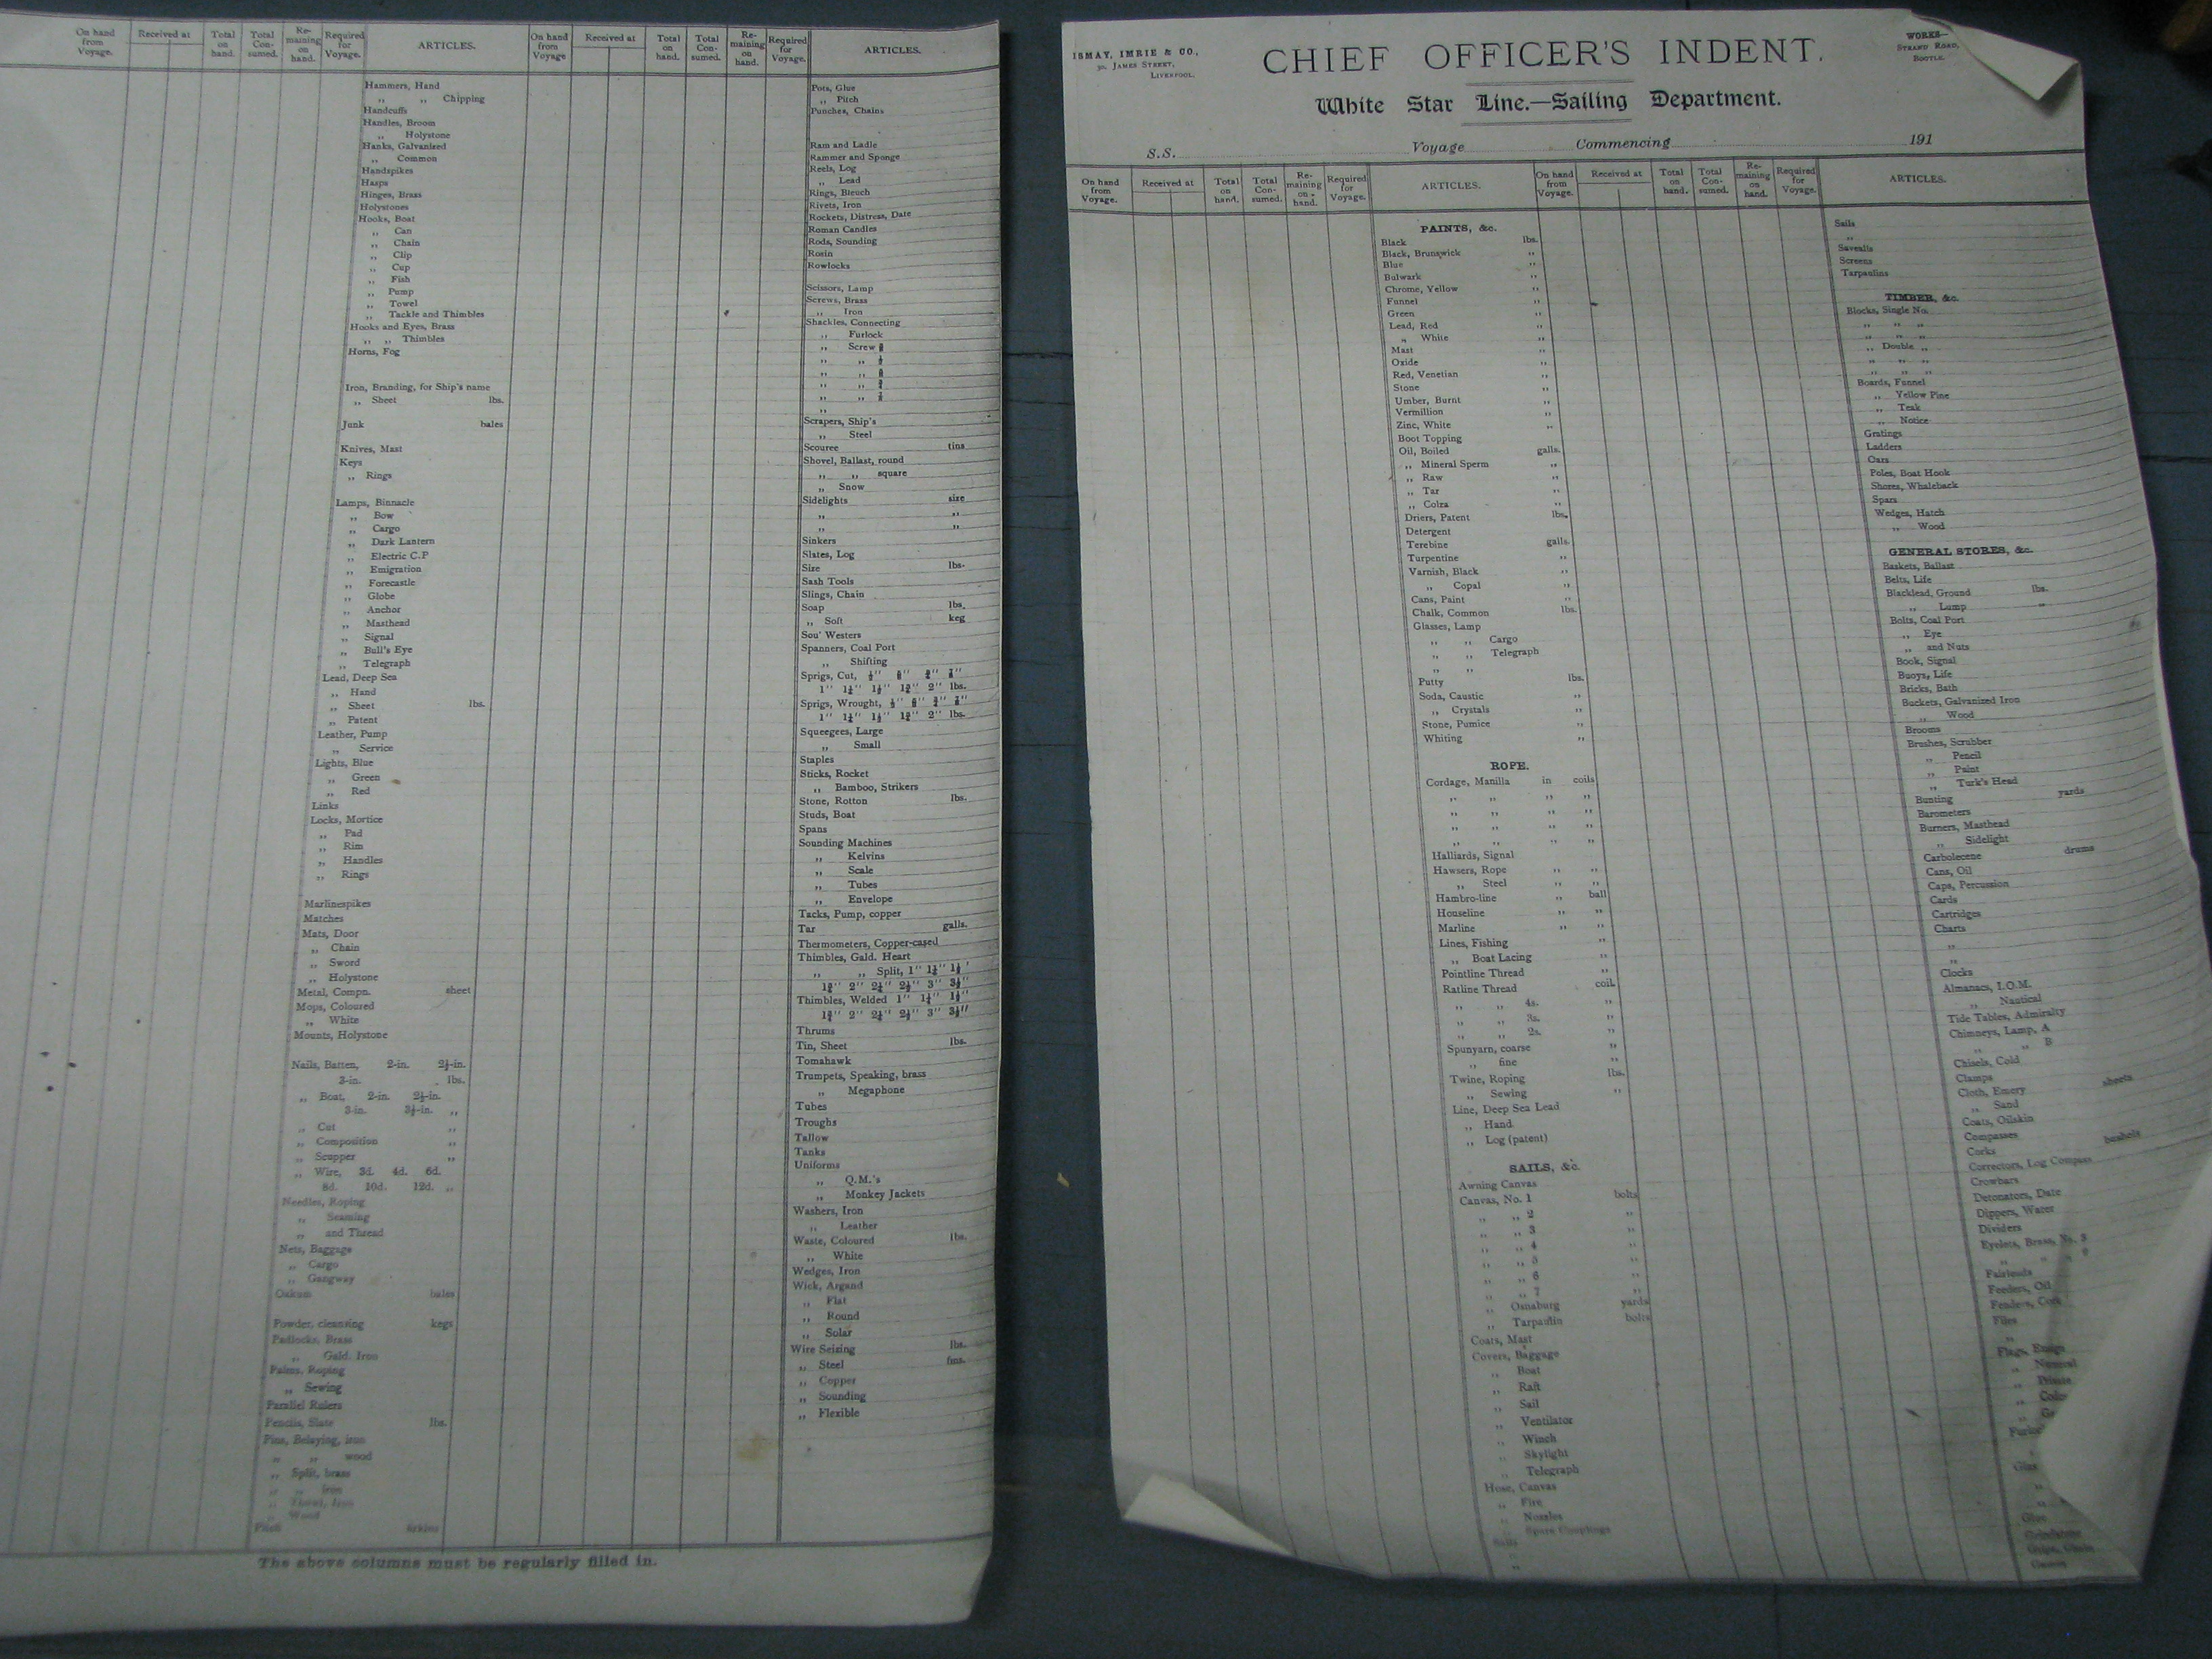 On hand from Voyage. Received at Total on hand. Total Con- sumed. Re- maining on hand. Required for Voyage. ARTICLES. On hand from Voyage Received at Total on hand. Total Con- sumed. Re- maining on hand. Required for Voyage. ARTICLES.
Hammers, Hand
,, ,, Chipping
Handcuffs
Handles, Broom
,, Holystone
Hanks, Galvanized
,, Common
Handspikes
Hasps
Hinges, Brass
Holystones
Hooks, Boat
,, Can
,, Chain
,, Clip
,, Cup
,, Fish
,, Pump
,, Towel
,, Tackle and Thimbles
Hooks and Eyes, Brass
,, ,, Thimbles
Horns, Fog
Iron, Branding, for Ship's name
,, Sheet lbs.
Junk bales
Knives, Mast
Keys
,, Rings
Lamps, Binnacle
,, Bow
,, Cargo
,, Dark Lantern
,, Electric C.P
,, Emigration
,, Forecastle
,, Globe
,, Anchor
,, Masthead
,, Signal
,, Bull's Eye
,, Telegraph
Lead, Deep Sea
,, Hand
,, Sheet lbs.
,, Patent
Leather, Pump
,, Service
Lights, Blue
,, Green
,, Red
Links
Locks, Mortice
,, Pad
,, Rim
,, Handles
,, Rings
Marlinespikes
Matches
Mats, Door
,, Chain
,, Sword
,, Holystone
Metal, Compn. sheet
Mops, Coloured
,, White
Mounts, Holystone
Nails, Batten, 2-in. 2½-in.
3-in. lbs.
,, Boat, 2-in. 2½-in.
3-in. 3½-in. ,,
,, Cut ,,
,, Composition ,,
,, Scupper ,,
,, Wire, 3d. 4d. 6d.
8d. 10d. 12d. ,,
Needles, Roping
,, Seaming
,, and Thread
Nets, Baggage
,, Cargo
,, Gangway
Oakum bales
Powder, cleansing kegs
Padlocks, Brass
,, Gald. Iron
Palms, Roping
,, Sewing
Parallel Rulers
Pencils, Slate lbs.
Pins, Belaying, iron
,, ,, wood
,, Split, brass
,, ,, iron
,, Iron
,, Wood
Pitch
Pots, Glue
,, Pitch
Punches, Chains
Ram and Ladle
Rammer and Sponge
Reels, Log
,, Lead
Rings, Bleuch
Rivets, Iron
Rockets, Distress, Date
Roman Candles
Rods, Sounding
Rosin
Rowlocks
Scissors, Lamp
Screws, Brass
,, Iron
Shackles, Connecting
,, Furlock
,, Screw
,, ,,
,, ,,
,, ,,
,, ,,
,,
Scrapers, Ship's
,, Steel
Scouree tins
Shovel, Ballast, round
,, ,, square
,, Snow
Sidelights size
,, ,,
,, ,,
Sinkers
Slates, Log
Size lbs.
Sash Tools
Slings, Chain
Soap lbs.
,, Soft keg
Sou' Westers
Spanners, Coal Port
,, Shifting
Sprigs, Cut,
1" 1¼" 1½" 1¾" 2" lbs.
Sprigs, Wrought,
1" 1¼" 1½" 1¾" 2" lbs.
Squeegees, Large
,, Small
Staples
Sticks, Rocket
,, Bamboo, Strikers
Stone, Rotton lbs.
Studs, Boat
Spans
Sounding Machines
,, Kelvins
,, Scale
,, Tubes
,, Envelope
Tacks, Pump, copper
Tar galls.
Thermometers, Copper-cased
Thimbles, Gald. Heart
,, ,, Split, 1" 1¼" 1½"
1¾" 2" 2¼" 2½" 3" 3½"
Thimbles, Welded 1" 1¼" 1½"
1¾" 2" 2¼" 2½" 3" 3½"
Thrums
Tin, Sheet lbs.
Tomahawk
Trumpets, Speaking, brass
,, Megaphone
Tubes
Troughs
Tallow
Tanks
Uniforms
,, Q.M.'s
,, Monkey Jackets
Washers, Iron
,, Leather
Waste, Coloured lbs.
,, White
Wedges, Iron
Wick, Argand
,, Flat
,, Round
,, Solar
Wire Seizing lbs.
,, Steel fms.
,, Copper
,, Sounding
,, Flexible
The above columns must be regularly filled in.
ISMAY, IMRIE & CO.,
30, JAMES STREET,
LIVERPOOL.
CHIEF OFFICER'S INDENT.
WORKS—
STRAND ROAD,
BOOTLE.
White Star Line.—Sailing Department.
S.S. Voyage Commencing 191
On hand from Voyage. Received at Total on hand. Total Con- sumed. Re- maining on hand. Required for Voyage. ARTICLES. On hand from Voyage. Received at Total on hand. Total Con- sumed. Re- maining on hand. Required for Voyage. ARTICLES.
PAINTS, &c.
Black lbs.
Black, Brunswick ,,
Blue ,,
Bulwark ,,
Chrome, Yellow ,,
Funnel ,,
Green ,,
Lead, Red ,,
,, White ,,
Mast ,,
Oxide ,,
Red, Venetian ,,
Stone ,,
Umber, Burnt ,,
Vermillion ,,
Zinc, White ,,
Boot Topping
Oil, Boiled galls.
,, Mineral Sperm ,,
,, Raw ,,
,, Tar ,,
,, Colza ,,
Driers, Patent lbs.
Detergent
Terebine galls.
Turpentine ,,
Varnish, Black ,,
,, Copal ,,
Cans, Paint ,,
Chalk, Common lbs.
Glasses, Lamp
,, ,, Cargo
,, ,, Telegraph
,, ,,
Putty lbs.
Soda, Caustic ,,
,, Crystals ,,
Stone, Pumice ,,
Whiting ,,
ROPE.
Cordage, Manilla in coils
,, ,, ,, ,,
,, ,, ,, ,,
,, ,, ,, ,,
,, ,, ,, ,,
Halliards, Signal
Hawsers, Rope ,, ,,
,, Steel ,, ,,
Hambro-line ,, ball
Houseline ,, ,,
Marline ,, ,,
Lines, Fishing ,,
,, Boat Lacing ,,
Pointline Thread ,,
Ratline Thread coil
,, ,, 4s. ,,
,, ,, 3s. ,,
,, ,, 2s. ,,
Spunyarn, coarse ,,
,, fine ,,
Twine, Roping lbs.
,, Sewing ,,
Line, Deep Sea Lead
,, Hand
,, Log (patent)
SAILS, &c.
Awning Canvas
Canvas, No. 1 bolts
,, ,, 2 ,,
,, ,, 3 ,,
,, ,, 4 ,,
,, ,, 5 ,,
,, ,, 6 ,,
,, ,, 7 ,,
,, Osnaburg yards
,, Tarpaulin bolts
Coats, Mast
Covers, Baggage
,, Boat
,, Raft
,, Sail
,, Ventilator
,, Winch
,, Skylight
,, Telegraph
Hose, Canvas
,, Fire
,, Nozzles
,, Spare Couplings
Sails
,,
,,
Sails
,,
Savealls
Screens
Tarpaulins
TIMBER, &c.
Blocks, Single No.
,, ,, ,,
,, ,, ,,
,, Double ,,
,, ,, ,,
,, ,, ,,
Boards, Funnel
,, Yellow Pine
,, Teak
,, Notice
Gratings
Ladders
Oars
Poles, Boat Hook
Shores, Whaleback
Spars
Wedges, Hatch
,, Wood
GENERAL STORES, &c.
Baskets, Ballast
Belts, Life
Blacklead, Ground lbs.
,, Lump ,,
Bolts, Coal Port
,, Eye
,, and Nuts
Book, Signal
Buoys, Life
Bricks, Bath
Buckets, Galvanized Iron
,, Wood
Brooms
Brushes, Scrubber
,, Pencil
,, Paint
,, Turk's Head
Bunting yards
Barometers
Burners, Masthead
,, Sidelight
Carbolecene drums
Cans, Oil
Caps, Percussion
Cards
Cartridges
Charts
,,
,,
Clocks
Almanacs, I.O.M.
,, Nautical
Tide Tables, Admiralty
Chimneys, Lamp, A
,, ,, B
Chisels, Cold
Clamps
Cloth, Emery sheets
,, Sand
Coats, Oilskin
Compasses
Corks bushels
Correctors, Log Compass
Crowbars
Detonators, Date
Dippers, Water
Dividers
Eyelets, Brass, No. 5
,, ,, ,,
Fairleads
Feeders, Oil
Fenders, Cork
Files
,,
Flags, Ensign
,, Numeral
,, Private
,,
,,
Glue
Grindstone
Grips, Chain